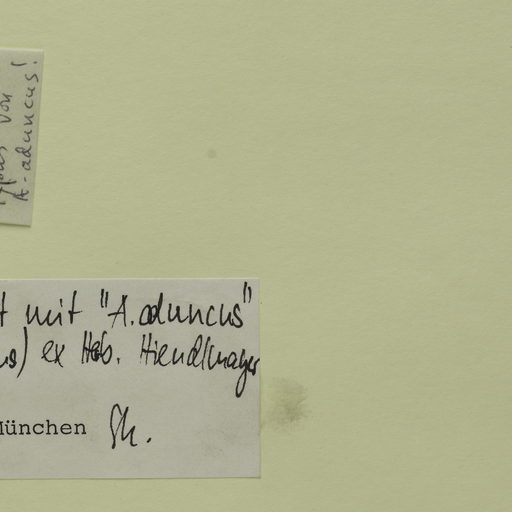 von
A. aduncus!
t mit "A. aduncus"
us) ex Heb. Hiendlmayer
München Ph.